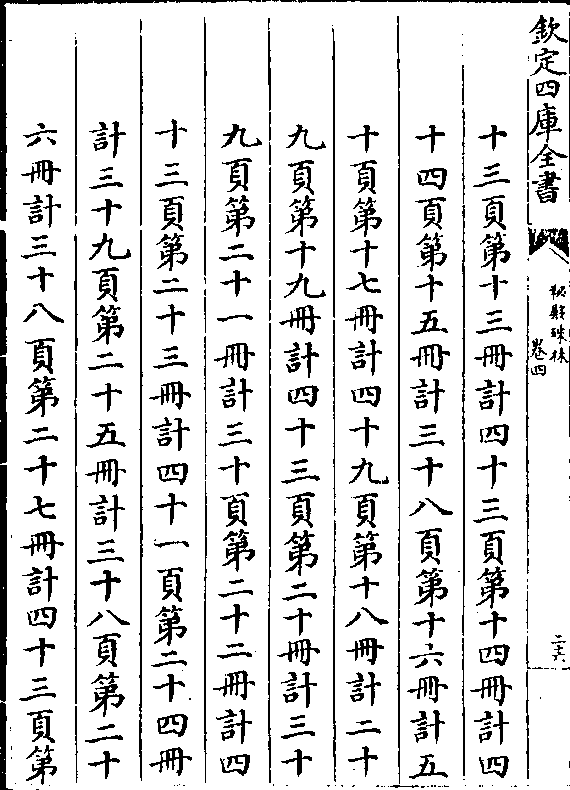 欽定四庫全書
秘殿珠林
卷四
二六
十三頁第十三冊計四十三頁第十四冊計四
十四頁第十五冊計三十八頁第十六冊計五
十頁第十七冊計四十九頁第十八冊計二十
九頁第十九冊計四十三頁第二十冊計三十
九頁第二十一冊計三十頁第二十二冊計四
十三頁第二十三冊計四十一頁第二十四冊
計三十九頁第二十五冊計三十八頁第二十
六冊計三十八頁第二十七冊計四十三頁第